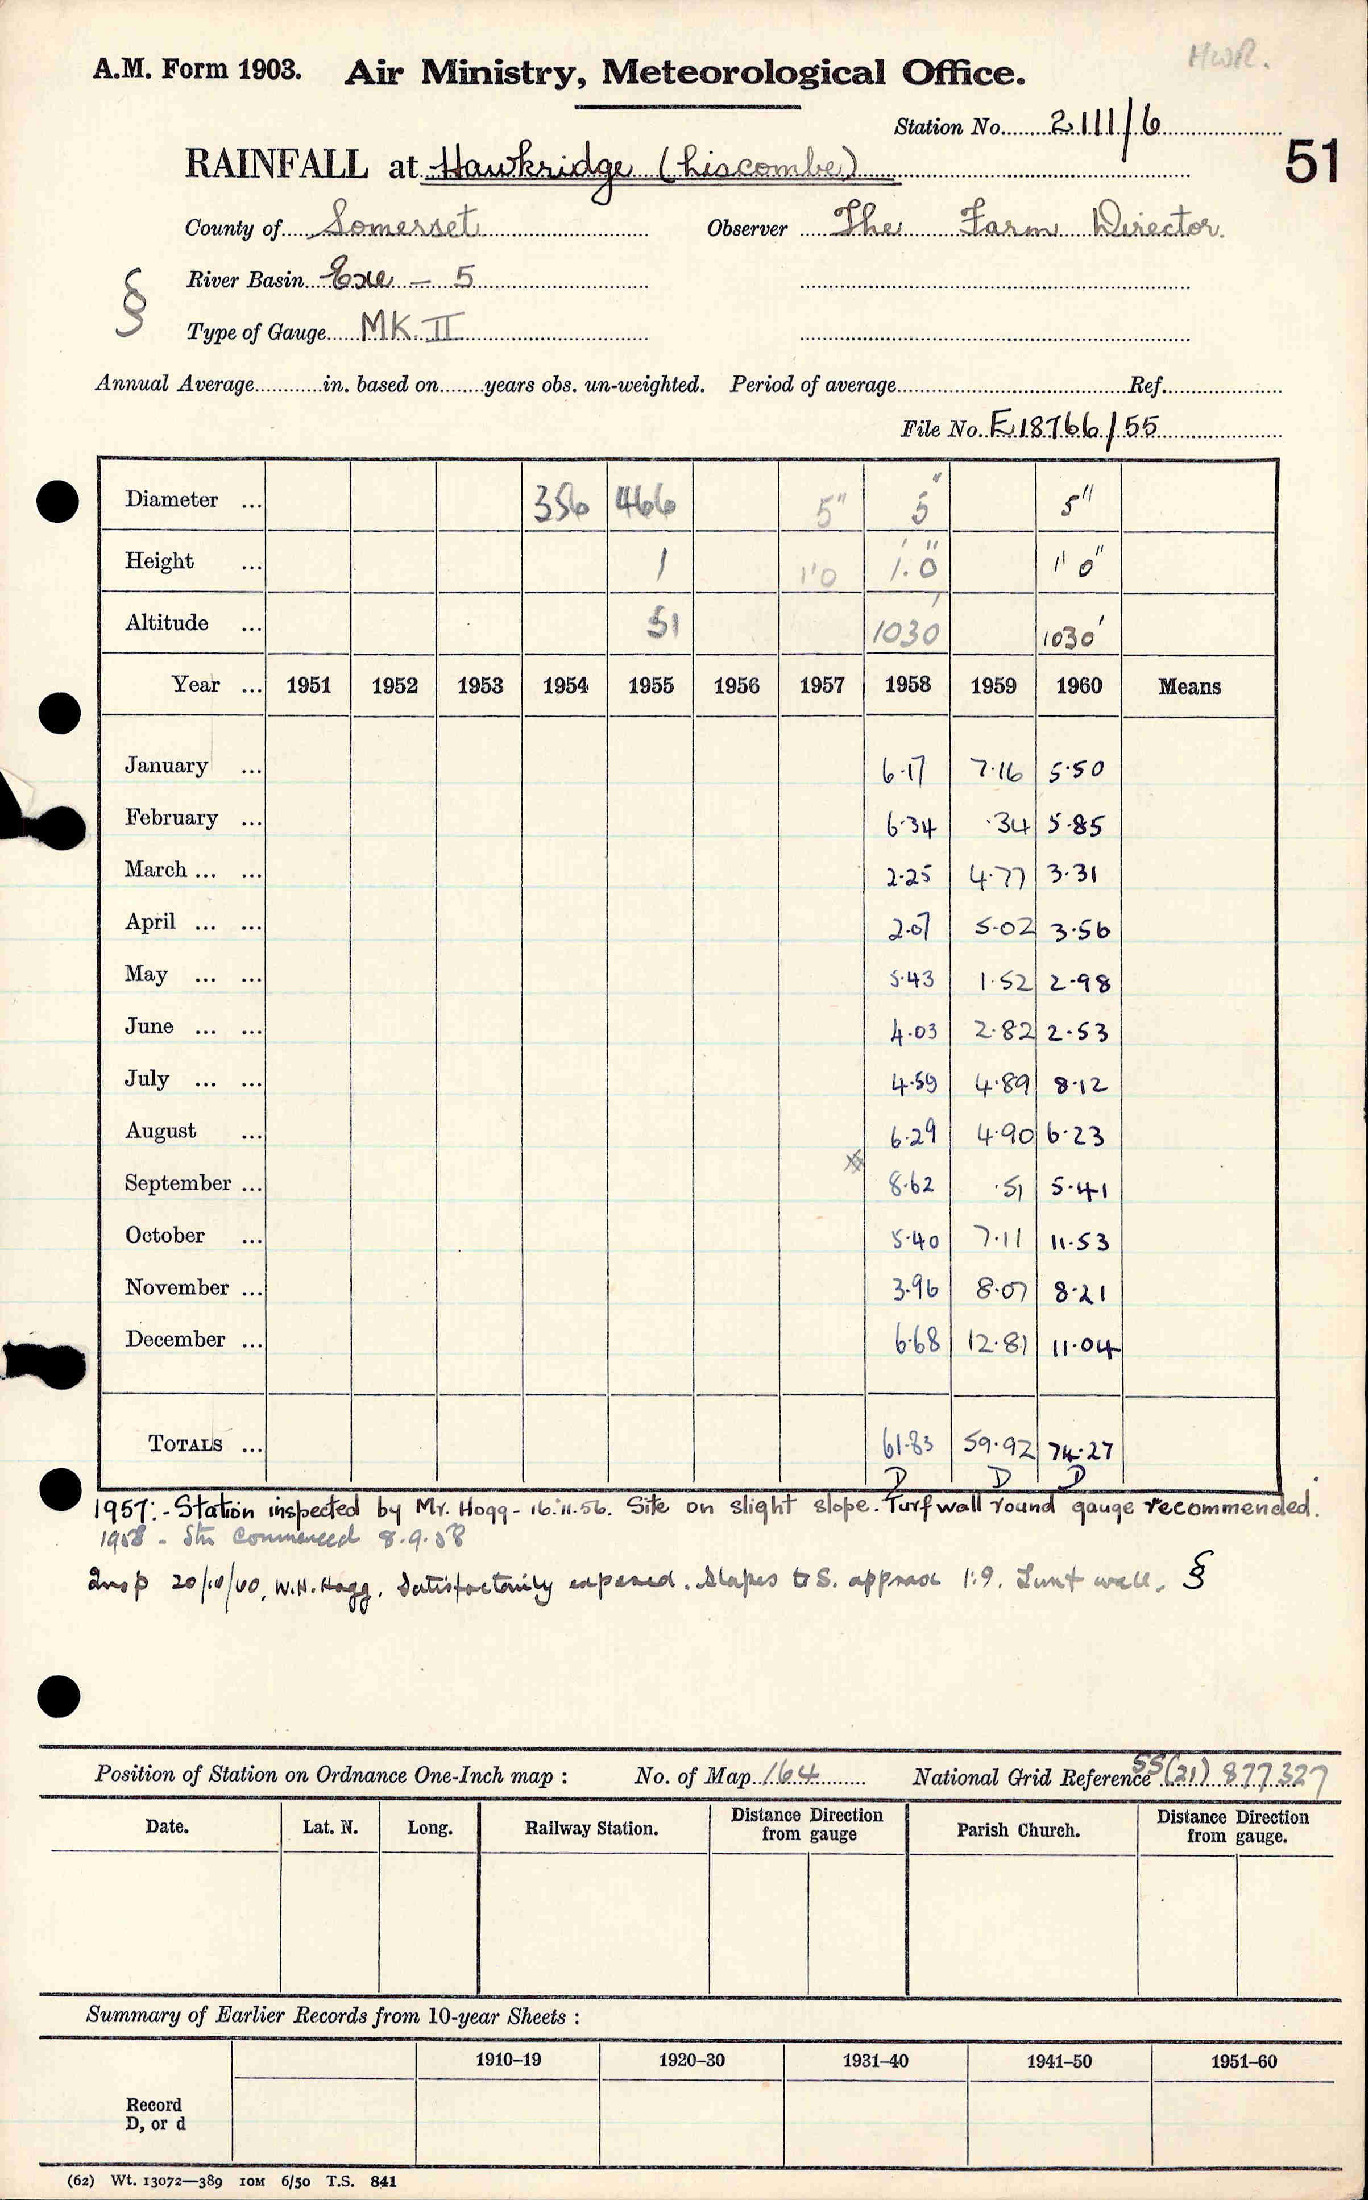 HWR.
A.M. Form 1903. Air Ministry, Meteorological Office.
Station No. 2111/6
51
RAINFALL at Hawkridge (Liscombe)
County of Somerset Observer The Farm Director.
River Basin Exe - 5
§
Type of Gauge MK. II
Annual Average in. based on years obs. un-weighted. Period of average Ref.
File No. E18766/55
Diameter ... 356 466 5" 5" 5"
Height ... 1 1'0 1'.0" 1' 0"
Altitude ... 51 1030' 1030'
Year ... 1951 1952 1953 1954 1955 1956 1957 1958 1959 1960 Means
January ... 6.17 7.16 5.50
February ... 6.34 .34 5.85
March ... ... 2.25 4.77 3.31
April ... ... 2.07 5.02 3.56
May ... ... 5.43 1.52 2.98
June ... ... 4.03 2.82 2.53
July ... ... 4.59 4.89 8.12
August ... 6.29 4.90 6.23
September ... 8.62 .51 5.41
October ... 5.40 7.11 11.53
November ... 3.96 8.07 8.21
December ... 6.68 12.81 11.04
TOTALS ... 61.83 59.92 74.27
D D D
1957:- Station inspected by Mr. Hogg - 16.11.56. Site on slight slope. Turf wall round gauge recommended.
1958 - Stn Commenced 8.9.58
Insp 20/10/60, W.H. Hogg. Satisfactorily exposed. Slopes to S. approx 1:9. Turf wall. §
Position of Station on Ordnance One-Inch map : No. of Map 164 National Grid Reference SS(21) 877327
Date. Lat. N. Long. Railway Station. Distance Direction from gauge Parish Church. Distance Direction from gauge.
Summary of Earlier Records from 10-year Sheets :
1910–19 1920–30 1931–40 1941–50 1951–60
Record
D, or d
(62) Wt. 13072—389 10M 6/50 T.S. 841